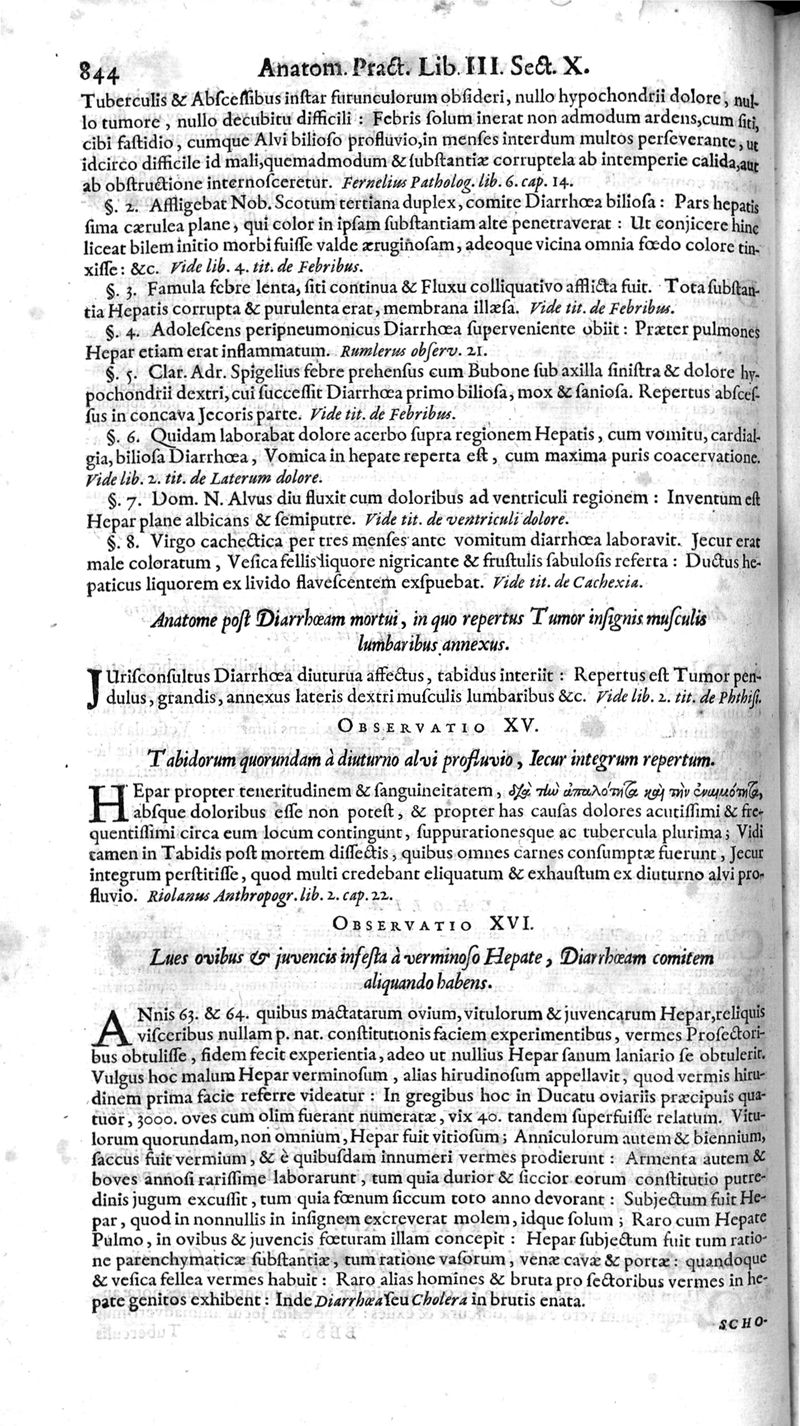 844 Anatom. Pract. Lib. III. Sect. X.
Tuberculis & Abſceſſibus inſtar furunculorum obſideri, nullo hypochondrii dolore, nul-
lo tumore, nullo decubitu difficili : Febris ſolum inerat non admodum ardens, cum ſiti,
cibi faſtidio, cumque Alvi bilioſo profluvio, in menſes interdum multos perſeverante, ut
idcirco difficile id mali, quemadmodum & ſubſtantiæ corruptela ab intemperie calida, aut
ab obſtructione internoſceretur. Fernelius Patholog. lib. 6. cap. 14.
§. 2. Affligebat Nob. Scotum tertiana duplex, comite Diarrhœa bilioſa : Pars hepatis
ſima cærulea plane, qui color in ipſam ſubſtantiam alte penetraverat : Ut conjicere hinc
liceat bilem initio morbi fuiſſe valde æruginoſam, adeoque vicina omnia fœdo colore tin-
xiſſe : &c. Vide lib. 4. tit. de Febribus.
§. 3. Famula febre lenta, ſiti continua & Fluxu colliquativo afflicta fuit. Tota ſubſtan-
tia Hepatis corrupta & purulenta erat, membrana illæſa. Vide tit. de Febribus.
§. 4. Adoleſcens peripneumonicus Diarrhœa ſuperveniente obiit : Præter pulmones
Hepar etiam erat inflammatum. Rumlerus obſerv. 21.
§. 5. Clar. Adr. Spigelius febre prehenſus cum Bubone ſub axilla ſiniſtra & dolore hy-
pochondrii dextri, cui ſucceſſit Diarrhœa primo bilioſa, mox & ſanioſa. Repertus abſceſ-
ſus in concava Jecoris parte. Vide tit. de Febribus.
§. 6. Quidam laborabat dolore acerbo ſupra regionem Hepatis, cum vomitu, cardial-
gia, bilioſa Diarrhœa, Vomica in hepate reperta eſt, cum maxima puris coacervatione.
Vide lib. 2. tit. de Laterum dolore.
§. 7. Dom. N. Alvus diu fluxit cum doloribus ad ventriculi regionem : Inventum eſt
Hepar plane albicans & ſemiputre. Vide tit. de ventriculi dolore.
§. 8. Virgo cachectica per tres menſes ante vomitum diarrhœa laboravit. Jecur erat
male coloratum, Veſica fellis liquore nigricante & fruſtulis ſabuloſis referta : Ductus he-
paticus liquorem ex livido flaveſcentem exſpuebat. Vide tit. de Cachexia.
Anatome poſt Diarrhœam mortui, in quo repertus Tumor inſignis muſculis
lumbaribus annexus.
JUriſconſultus Diarrhœa diuturua affectus, tabidus interiit : Repertus eſt Tumor pen-
dulus, grandis, annexus lateris dextri muſculis lumbaribus &c. Vide lib. 2. tit. de Phthiſi.
OBSERVATIO XV.
Tabidorum quorundam à diuturno alvi profluvio, Iecur integrum repertum.
HEpar propter teneritudinem & ſanguineitatem, διὰ τὼ ἁπαλότητα καὶ τὴν ἐναιμότητα,
abſque doloribus eſſe non poteſt, & propter has cauſas dolores acutiſſimi & fre-
quentiſſimi circa eum locum contingunt, ſuppurationesque ac tubercula plurima; Vidi
tamen in Tabidis poſt mortem diſſectis, quibus omnes carnes conſumptæ fuerunt, Jecur
integrum perſtitiſſe, quod multi credebant eliquatum & exhauſtum ex diuturno alvi pro-
fluvio. Riolanus Anthropogr. lib. 2. cap. 22.
OBSERVATIO XVI.
Lues ovibus & juvencis infeſta à verminoſo Hepate, Diarrhœam comitem
aliquando habens.
ANnis 63. & 64. quibus mactatarum ovium, vitulorum & juvencarum Hepar, reliquis
viſceribus nullam p. nat. conſtitutionis faciem experimentibus, vermes Proſectori-
bus obtuliſſe, fidem fecit experientia, adeo ut nullius Hepar ſanum laniario ſe obtulerit.
Vulgus hoc malum Hepar verminoſum, alias hirudinoſum appellavit, quod vermis hiru-
dinem prima facie referre videatur : In gregibus hoc in Ducatu oviariis præcipuis qua-
tuor, 3000. oves cum olim fuerant numeratæ, vix 40. tandem ſuperfuiſſe relatum. Vitu-
lorum quorundam, non omnium, Hepar fuit vitioſum; Anniculorum autem & biennium,
ſaccus fuit vermium, & è quibuſdam innumeri vermes prodierunt : Armenta autem &
boves annoſi rariſſime laborarunt, tum quia durior & ſiccior eorum conſtitutio putre-
dinis jugum excuſſit, tum quia fœnum ſiccum toto anno devorant : Subjectum fuit He-
par, quod in nonnullis in inſignem excreverat molem, idque ſolum ; Raro cum Hepate
Pulmo, in ovibus & juvencis fœturam illam concepit : Hepar ſubjectum fuit tum ratio-
ne parenchymaticæ ſubſtantiæ, tum ratione vaſorum, venæ cavæ & portæ : quandoque
& veſica fellea vermes habuit : Raro alias homines & bruta pro ſectoribus vermes in he-
pate genitos exhibent : Inde Diarrhœa ſeu Cholera in brutis enata.
SCHO-